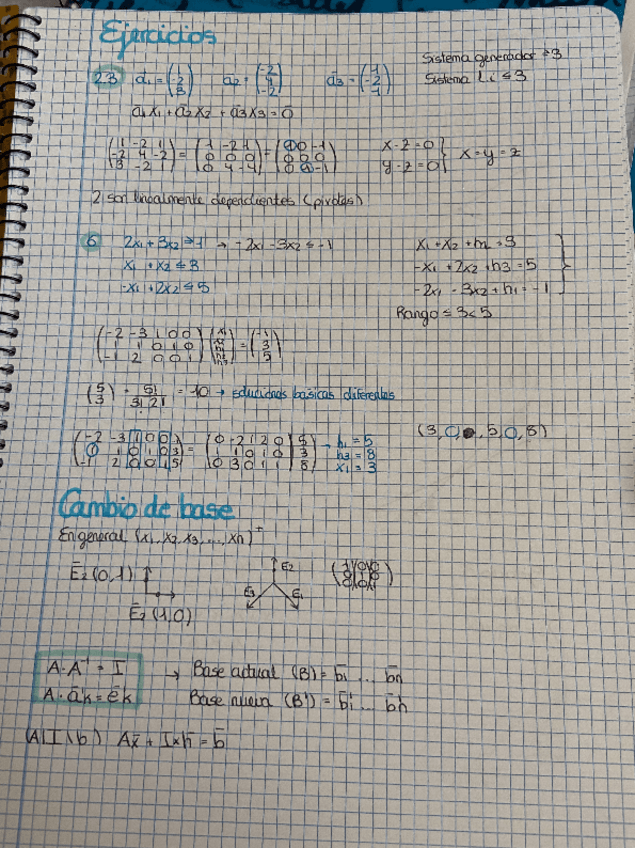 Ejercicios
Sistema generador ≥3
Sistema l.i ≤ 3
2.3 ā₁ = (1 -2 3) ā₂ = (-2 4 -2) ā₃ = (1 -2 1)
ā₁x₁ + ā₂x₂ + ā₃x₃ = ō
(1 -2 1 / -2 4 -2 / 3 -2 1) = (1 -2 1 / 0 0 0 / 0 4 -4) = (1 0 -1 / 0 0 0 / 0 1 -1) x-z=0 y-z=0 } x=y=z
2 son linealmente dependientes (pivotes)
6 2x₁ + 3x₂ ≥ 1 → -2x₁ - 3x₂ ≤ -1
x₁ + x₂ ≤ 3
-x₁ + 2x₂ ≤ 5
x₁ + x₂ + h₂ = 3
-x₁ + 2x₂ + h₃ = 5
-2x₁ - 3x₂ + h₁ = -1
Rango ≤ 3 < 5
(-2 -3 1 0 0 / 1 1 0 1 0 / -1 2 0 0 1) = (-1 3 5)
(5 3) = 5! / 3! 2! = 10 → soluciones básicas diferentes
(-2 -3 1 0 0 -1 / 1 1 0 1 0 3 / -1 2 0 0 1 5) = (0 -2 1 2 0 5 / 1 1 0 1 0 3 / 0 3 0 1 1 8) → h₁ = 5 h₃ = 8 x₁ = 3
(3, 0, 5, 0, 8)
Cambio de base
En general (x₁, x₂, x₃, ..., xn)ᵀ
Ē₂ (0,1)
Ē₂ (1,0)
E₂
E₃ E₁
A·A⁻¹ = I → Base actual (B) = b̄₁ ... b̄n
A·āk = ēk Base nueva (B') = b̄₁' ... b̄n'
(A|I|b) Ax̄ + I×h̄ = b̄